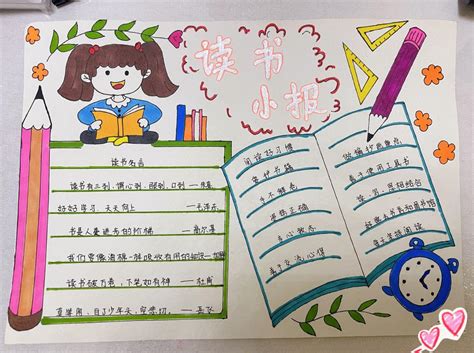 读书
小报
读书名言
读书有三到，谓心到，眼到，口到 —朱熹
好好学习，天天向上 —毛泽东
书是人类进步的阶梯 —高尔基
我们要像海绵一样吸收有用的知识
读书破万卷，下笔如有神 —杜甫
莫等闲，白了少年头，空悲切 —岳飞
阅读好习惯
爱护书籍
手不释卷
姿势正确
专心致志
善于使用工具书
每天坚持阅读